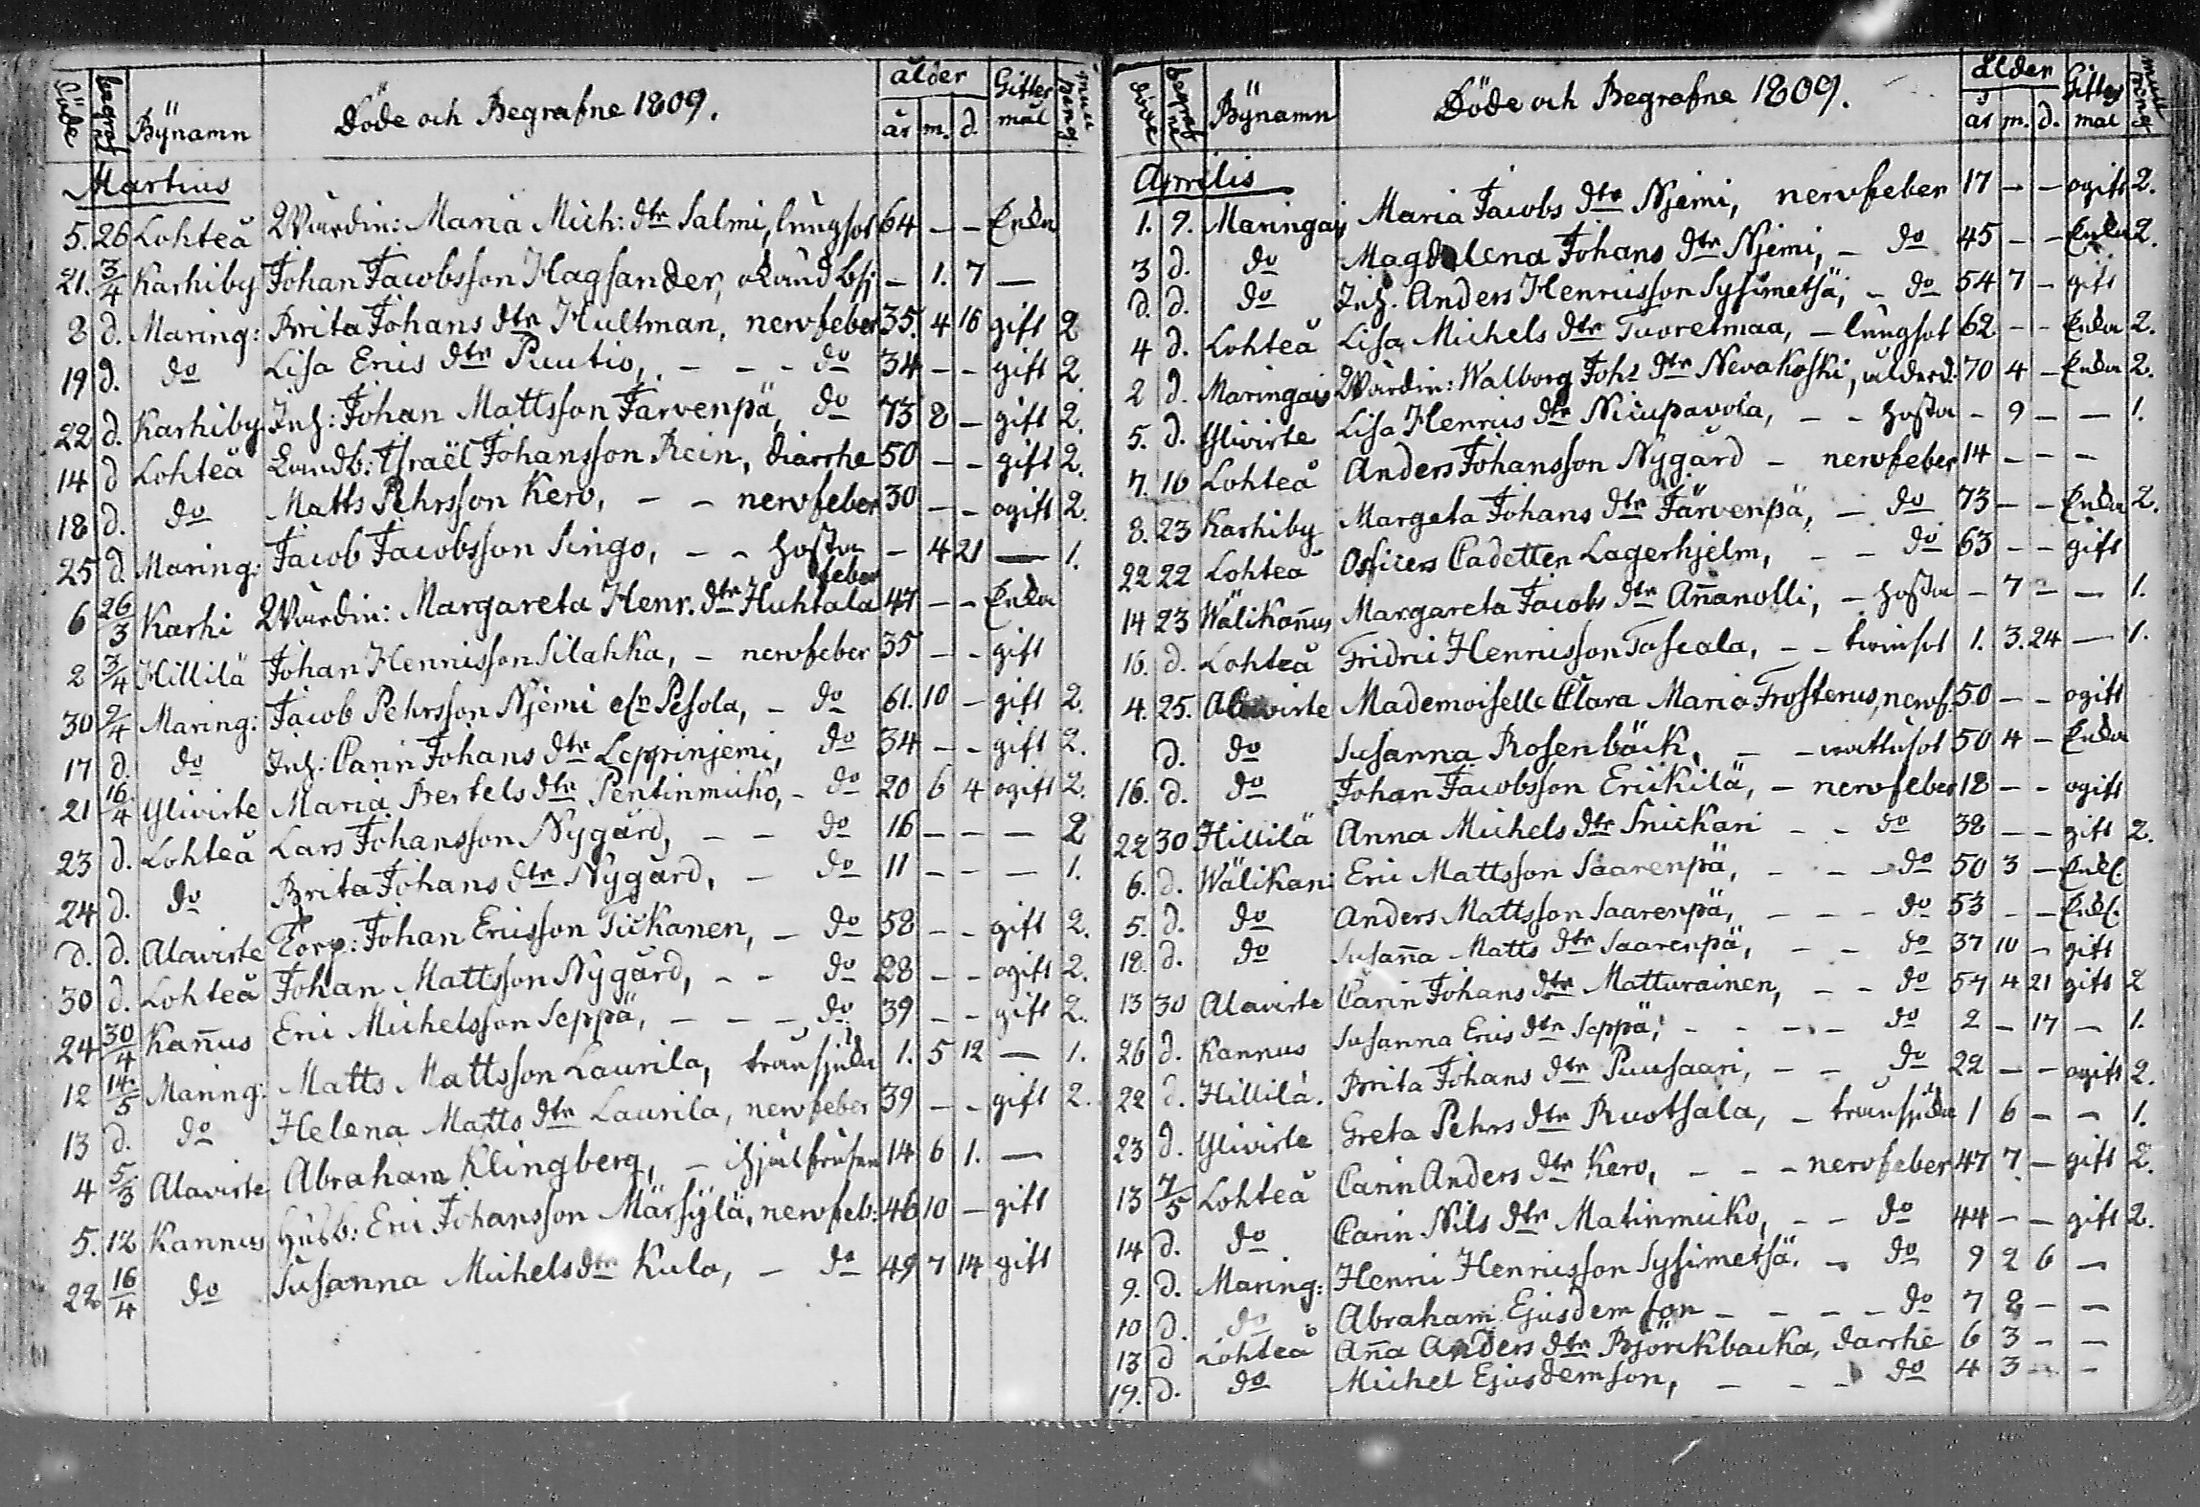 döde begraf Bÿnamn Döde och Begrafne 1809. ålder år m. d. Gifter mål
Martius
5. 26 Lohteå Wärdin: Maria Mich: dtr Salmi, lungsot 64 - - Enka
21. 3/4 Karhiby Johan Jacobsson Hagsander, okänd bsj - 1. 7 -
8 d. Maring: Brita Johans dtr Hultman, nervfeber 35. 4 16 gift 2
19 d. do Lisa Erics dtr Puutio, - - - do 34 - - gift 2.
22 d. Karhiby Inh: Johan Mattsson Jarvenpä, do 73 8 - gift 2.
14 d Lohteå Landb: Israël Johansson Rein, diarrhe 50 - - gift 2.
18 d. do Matts Pehrsson Kero, - - nervfeber 30 - - ogift 2.
25 d. Maring: Jacob Jacobsson Singo, - - hosta - 4 21 - 1.
6 26/3 Karhi Wärdin: Margareta Henr. dtr Huhtala feber 47 - - Enka
2 3/4 Hillilä Johan Henricsson Silahka, - nervfeber 35 - - gift
30 9/4 Maring: Jacob Pehrsson Njemi elr Pesola, - do 61. 10 - gift 2.
17 d. do Inh: Carin Johans dtr Leppinjemi, do 34 - - gift 2.
21 16/4 Ylivirte Maria Bertels dtr Pentinmicko, - do 20 6 4 ogift 2.
23 d. Lohteå Lars Johansson Nygård, - - do 16 - - - 2
24 d. do Brita Johans dtr Nygård, - do 11 - - - 1.
d. d. Alavirte Torp: Johan Ericsson Tickanen, - do 58 - - gift 2.
30 d. Lohteå Johan Mattsson Nygård, - - do 28 - - ogift 2.
24 30/4 Kan̄us Eric Michelsson Seppä, - - - do 39 - - gift 2.
12 14/5 Maring: Matts Mattsson Laurila, transjuka 1. 5 12 - 1.
13 d. do Helena Matts dtr Laurila, nervfeber 39 - - gift 2.
4 5/3 Alavirte Abraham Klingberg, - ihjälfrusen 14 6 1. -
5. 12 Kannus Husb: Eric Johansson Märsylä, nervfeb: 46 10 - gift
22 16/4 do Susanna Michelsdtr Kula, - do 49 7 14 gift
döde begrafne Bÿnamn Döde och Begrafne 1809. ålder år m. d. Gifter mål
Aprilis
1. 9. Maringais Maria Jacobs dtr Njemi, nervfeber 17 - - ogift 2.
3 d. do Magdalena Johans dtr Njemi, - do 45 - - Enka 2.
d. d. do Inh. Anders Henricsson Sysimetsä, - do 54 7 - gift
4 d. Lohteå Lisa Michels dtr Tuoretmaa, - lungsot 62 - - Enka 2.
2 d. Maringais Wärdin: Walborg Joh: dtr Nevakoski, ålderd. 70 4 - Enka 2.
5. d. Ylivirte Lisa Henrics dtr Nicupavola, - - hosta - 9 - - 1.
7. 16 Lohteå Anders Johansson Nygård - nervfeber 14 - - -
8. 23 Karhiby Margeta Johans dtr Järvenpä, - do 73 - - Enka 2.
22 22 Lohteå Officers Cadetten Lagerhjelm, - - do 63 - - gift
14 23 Wälikan̄us Margareta Jacobs dtr An̄anolli, - hosta - 7 - - 1.
16. d. Lohteå Fridric Henricsson Taseala, - - tvinsot 1. 3. 24 - 1.
4. 25. Alavirte Mademoiselle Clara Maria Frosterus, nervf. 50 - - ogift
d. do Susanna Rosenbäck, - - vattusot 50 4 - Enka
16. d. do Johan Jacobsson Erickilä, - nervfeber 18 - - ogift
22 30 Hillilä Anna Michels dtr Snickari - - do 38 - - gift 2.
6. d. Wälikan: Eric Mattsson Saarenpä, - - - do 50 3 - Enkl.
5. d. do Anders Mattsson Saarenpä, - - - do 53 - - Enkl.
18. d. do Susan̄a Matts dtr Saarenpä, - - do 37 10 - gift
13 30 Alavirte Carin Johans dtr Matturainen, - - do 54 4 21 gift 2
26 d. Kannus Susanna Erics dtr Seppä, - - - - do 2 - 17 - 1.
22 d. Hillilä. Brita Johans dtr Puusaari, - - do 22 - - ogift 2.
23 d. Ylivirte Greta Pehrs dtr Ruotsala, - transjuka 1 6 - - 1.
13 7/5 Lohteå Carin Anders dtr Kero, - - - nervfeber 47 7 - gift 2.
14 d. do Carin Nils dtr Matinmicko, - - do 44 - - gift 2.
9. d. Maring: Henric Henricsson Sysimetsä. - do 9 2 6 -
10 d. do Abraham Ejusdem son - - - - do 7 8 - -
13 d Lohteå An̄a Anders dtr Björckbacka, darrhe 6 3 - -
19. d. do Michel Ejusdemson, - - - do 4 3 - -